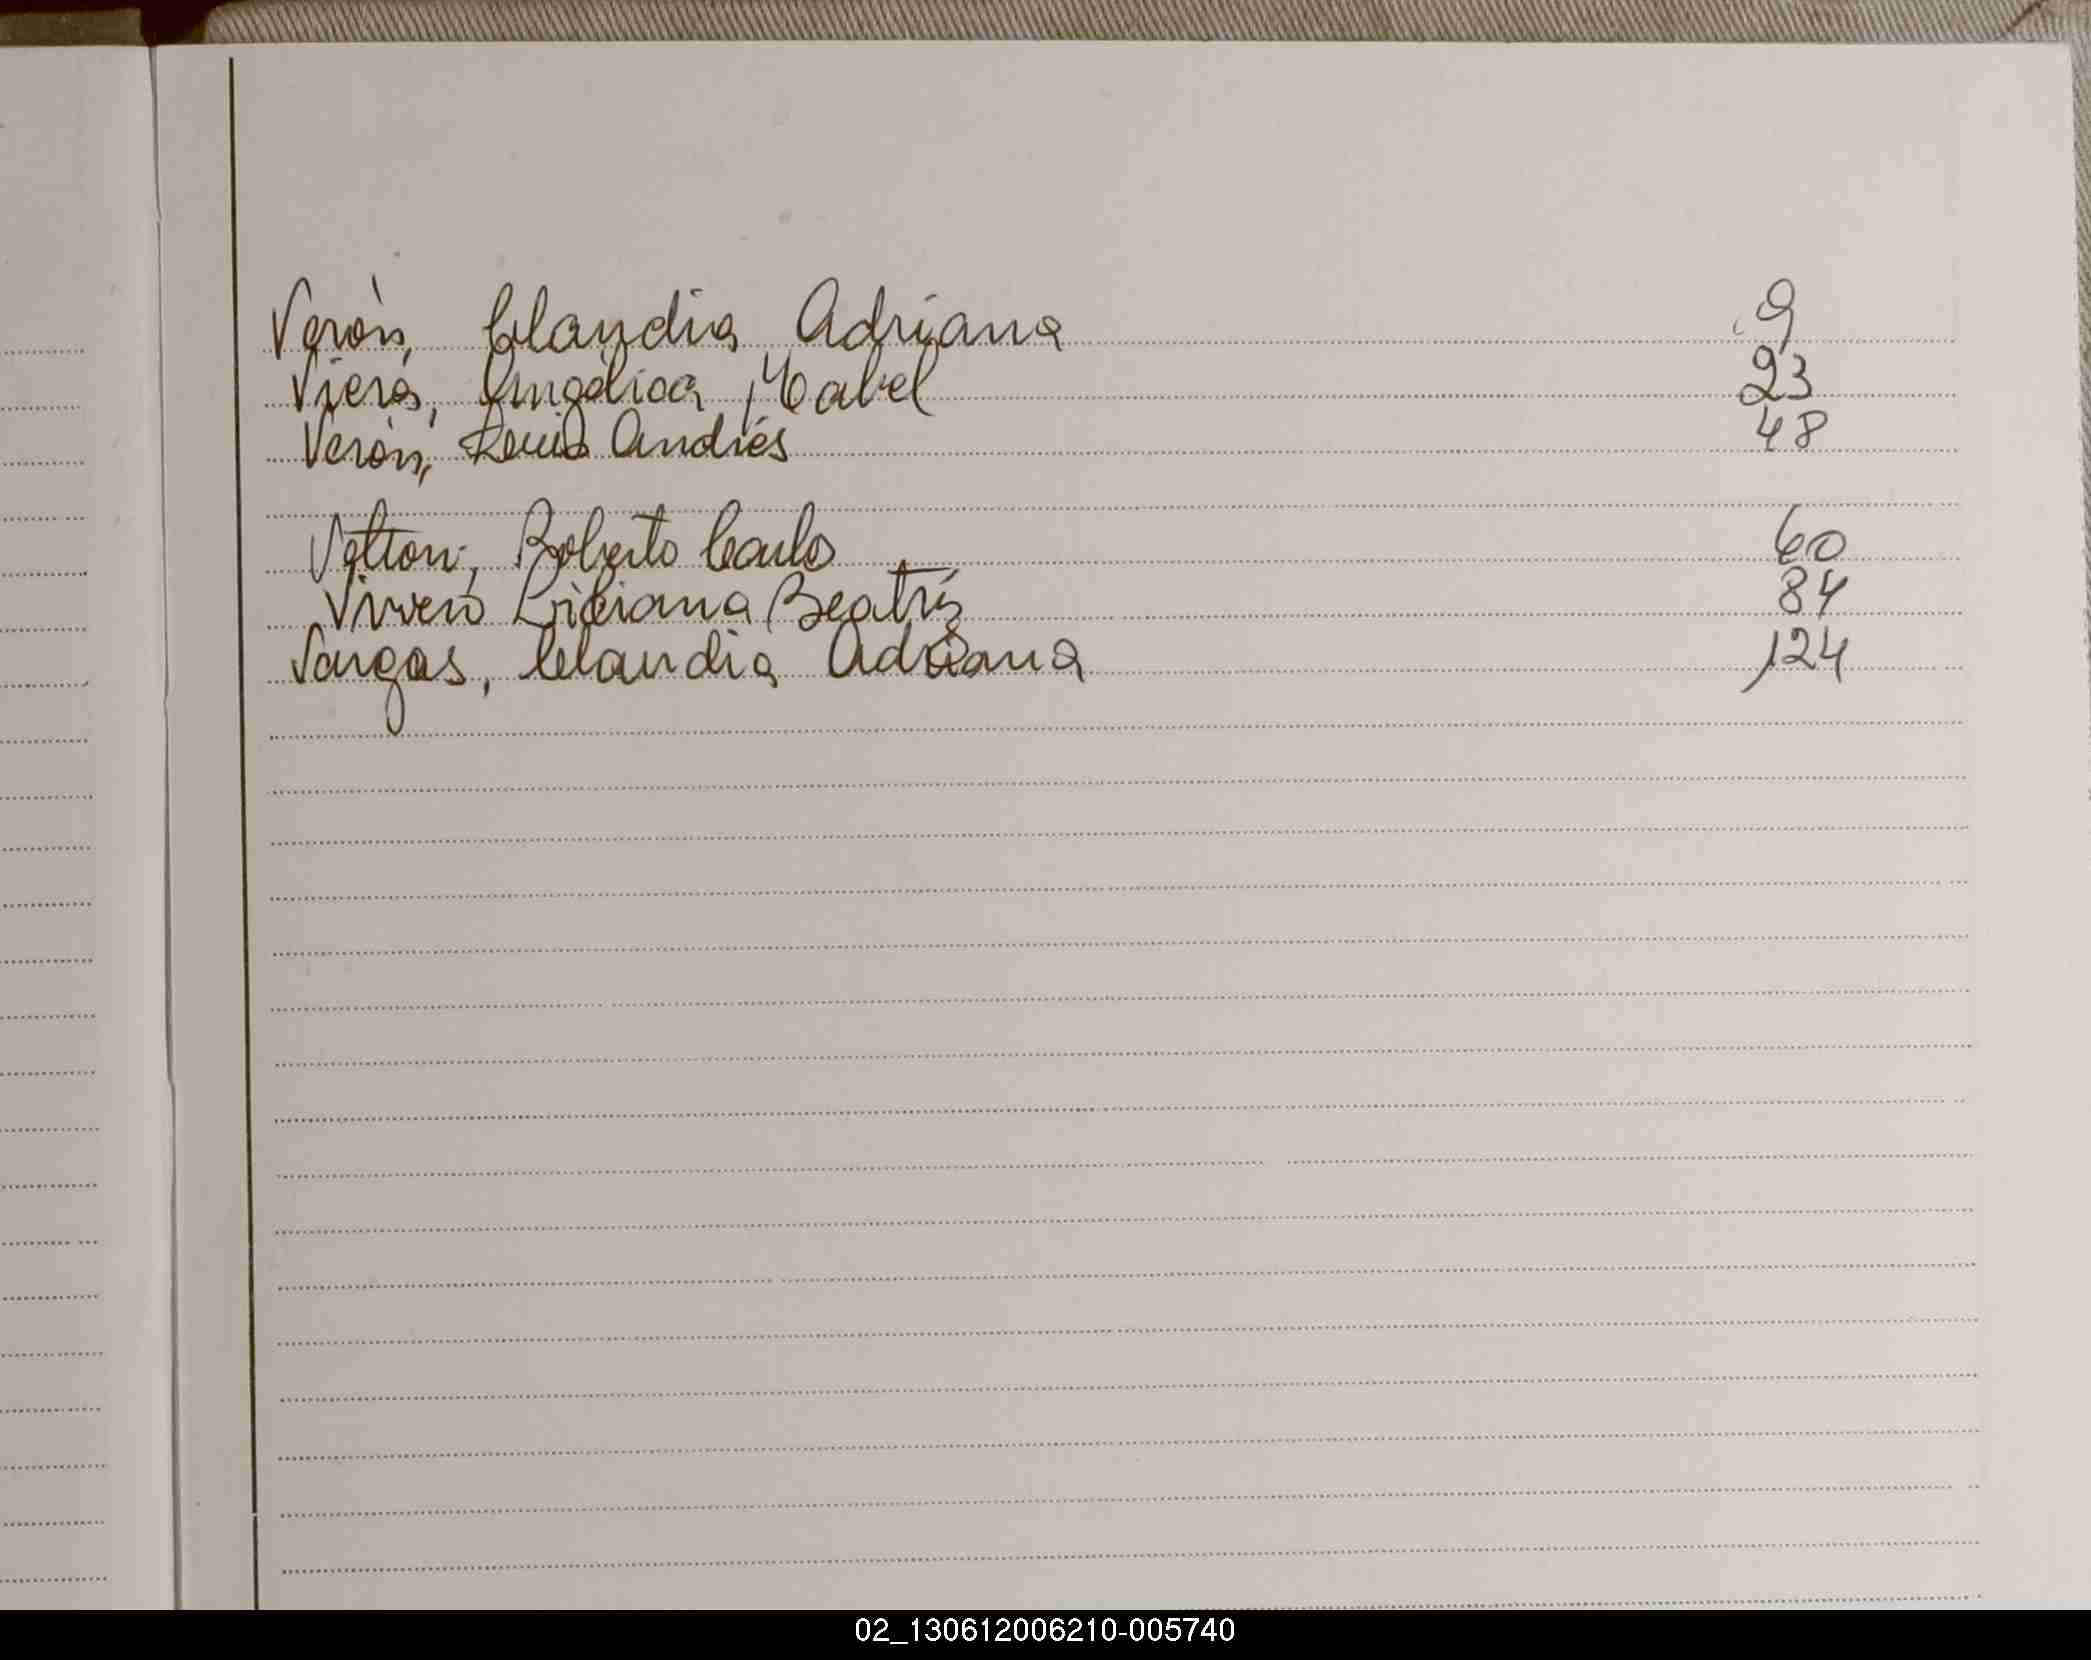 Verón, Claudia Adriana 9
Viera, Angélica Mabel 23
Verón, Luis Andrés 48
Vetton, Roberto Carlos 60
Vivero Liliana Beatríz 84
Vargas, Claudia Adriana 124
02_130612006210-005740